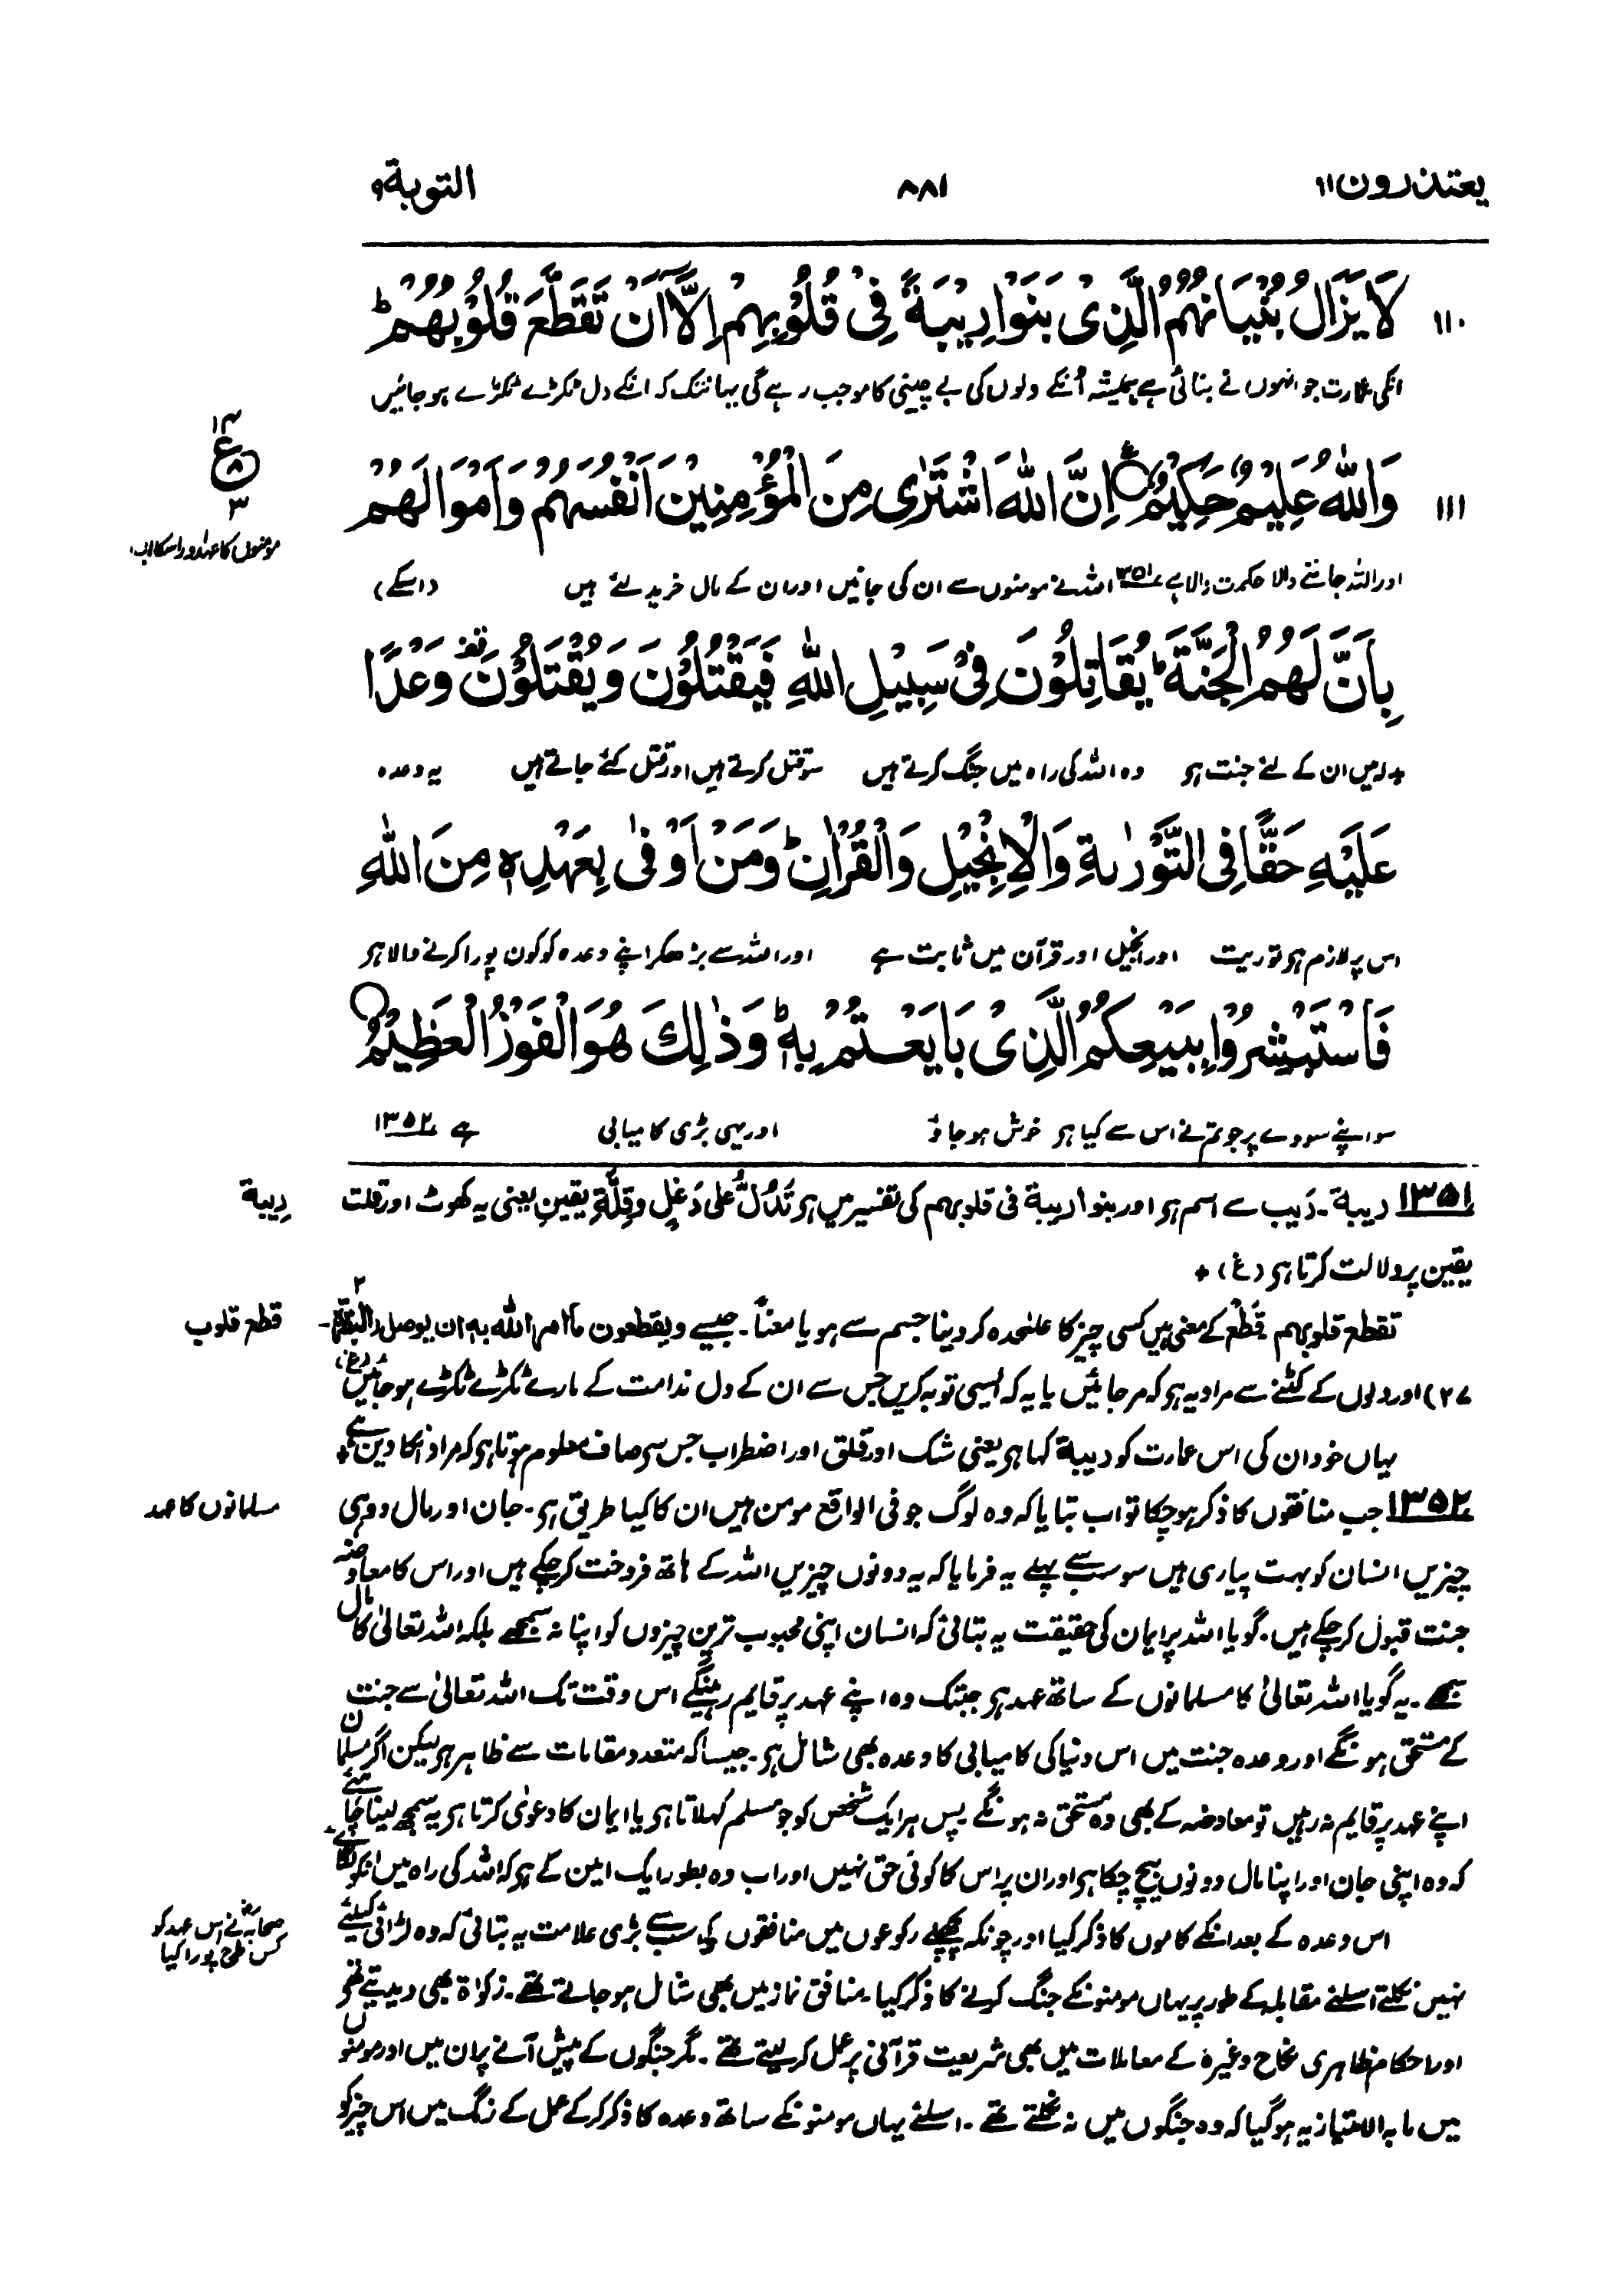 یعتذرون ۱۱
۸۸۱
التوبة ۹
۱۱۰
لَا يَزَالُ بُنْيَانُهُمُ الَّذِیْ بَنَوْا رِيْبَةً فِیْ قُلُوْبِهِمْ اِلَّآ اَنْ تَقَطَّعَ قُلُوْبُهُمْ ؕ
انکی عمارت جو انہوں نے بنائی ہے ہمیشہ اُنکے دلوں کی بے چینی کا موجب رہے گی یہانتک کہ انکے دل ٹکڑے ٹکڑے ہو جائیں
۱۱۱
وَاللّٰهُ عَلِيْمٌ حَكِيْمٌ ۝ اِنَّ اللّٰهَ اشْتَرٰى مِنَ الْمُؤْمِنِيْنَ اَنْفُسَهُمْ وَاَمْوَالَهُمْ
۱۴
ع
۸
۳
مومنوں کا عہد اور اسکا
اور اللہ جاننے والا حکمت والا ہے ۱۳۵۱ اللہ نے مومنوں سے ان کی جانیں اور ان کے مال خرید لئے ہیں (اسکے)
بِاَنَّ لَهُمُ الْجَنَّةَ ؕ يُقَاتِلُوْنَ فِیْ سَبِيْلِ اللّٰهِ فَيَقْتُلُوْنَ وَيُقْتَلُوْنَ قف وَعْدًا
بدلہ میں ان کے لئے جنت ہو وہ اللہ کی راہ میں جنگ کرتے ہیں سو قتل کرتے ہیں اور قتل کئے جاتے ہیں یہ وعدہ
عَلَيْهِ حَقًّا فِی التَّوْرٰىةِ وَالْاِنْجِيْلِ وَالْقُرْاٰنِ ؕ وَمَنْ اَوْفٰى بِعَهْدِهٖ مِنَ اللّٰهِ
اس پر لازم ہو توریت اور انجیل اور قرآن میں ثابت ہے اور اللہ سے بڑھکر اپنے وعدہ کو کون پورا کرنے والا ہو
فَاسْتَبْشِرُوْا بِبَيْعِكُمُ الَّذِیْ بَايَعْتُمْ بِهٖ ؕ وَذٰلِكَ هُوَ الْفَوْزُ الْعَظِيْمُ ۝
سو اپنے سودے پر جو تم نے اس سے کیا ہو خوش ہو جاؤ اور یہی بڑی کامیابی ہے ۱۳۵۲
۱۳۵۱ ریبة۔ رَیب سے اسم ہو اور بنوا ریبة فی قلوبہم کی تفسیر میں ہو تَدُلُّ علی دَغَلٍ وقِلَّةِ یقینٍ یعنی یہ کھوٹ اور قلت
ریبة
یقین پر دلالت کرتا ہو (غ) +
تقطع قلوبہم۔ قَطْع کے معنی ہیں کسی چیز کا علٰحدہ کر دینا جسم سے ہو یا معناً۔ جیسے ویقطعون ما امر اللّٰہ بہ ان یوصل (البقرة ۲-
قطع قلوب
۲۷) اور دلوں کے کٹنے سے مراد یہ ہو کہ مر جائیں یا یہ کہ ایسی توبہ کریں جس سے ان کے دل ندامت کے مارے ٹکڑے ٹکڑے ہو جائیں (غ)
یہاں خود ان کی اس عمارت کو ریبة کہا ہو یعنی شک اور قلق اور اضطراب جس سے صاف معلوم ہوتا ہو کہ مراد انکا دین ہے +
۱۳۵۲ جب منافقوں کا ذکر ہو چکا تو اب بتایا کہ وہ لوگ جو فی الواقع مومن ہیں ان کا کیا طریق ہو۔ جان اور مال دو ہی
مسلمانوں کا عہد
چیزیں انسان کو بہت پیاری ہیں سو سب سے پہلے یہ فرمایا کہ یہ دونوں چیزیں اللہ کے ہاتھ فروخت کر چکے ہیں اور اس کا معاوضہ
جنت قبول کر چکے ہیں۔ گویا اللہ پر ایمان کی حقیقت یہ بتائی کہ انسان اپنی محبوب ترین چیزوں کو اپنا نہ سمجھے بلکہ اللہ تعالیٰ کا مال
سمجھے۔ یہ گویا اللہ تعالیٰ کا مسلمانوں کے ساتھ عہد ہو جبتک وہ اپنے عہد پر قایم رہینگے اس وقت تک اللہ تعالیٰ سے جنت
کے مستحق ہونگے اور وعدہ جنت میں اس دنیا کی کامیابی کا وعدہ بھی شامل ہو۔ جیسا کہ متعدد مقامات سے ظاہر ہو لیکن اگر مسلمان
اپنے عہد پر قایم نہ رہیں تو معاوضہ کے بھی وہ مستحق نہ ہونگے۔ پس ہر ایک شخص کو جو مسلم کہلاتا ہو یا ایمان کا دعویٰ کرتا ہو یہ سمجھ لینا چاہئے
کہ وہ اپنی جان اور اپنا مال دونوں بیچ چکا ہو اور ان پر اس کا کوئی حق نہیں اور اب وہ بطور ایک امین کے ہو کہ اللہ کی راہ میں انکو لگائے
اس وعدہ کے بعد انکے کاموں کا ذکر کیا اور چونکہ پچھلے رکوعوں میں منافقوں کی سب سے بڑی علامت یہ بتائی کہ وہ لڑائی کیلئے
صحابہ نے اس عہد کو
کس طرح پورا کیا
نہیں نکلتے اسلئے مقابلہ کے طور پر یہاں مومنونکے جنگ کرنے کا ذکر کیا۔ منافق نماز میں بھی شامل ہو جاتے تھے۔ زکواۃ بھی دیدیتے تھے
اور احکام ظاہری نکاح وغیرہ کے معاملات میں بھی شریعت قرآنی پر عمل کر لیتے تھے۔ مگر جنگوں کے پیش آنے پر ان میں اور مومنوں
میں ما بہ الامتیاز یہ ہو گیا کہ وہ جنگوں میں نہ نکلتے تھے۔ اسلئے یہاں مومنونکے ساتھ وعدہ کا ذکر کرکے عمل کے رنگ میں اس چیز کو